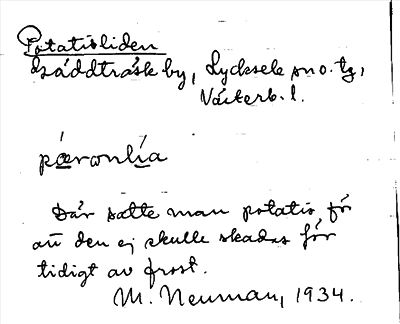 Potatisliden
Gäddträsk by, Lycksele sn o. tg,
Västerb. l.
pæ̀ronlía
Där satte man potatis, för
att den ej skulle skadas för
tidigt av frost.
M. Neuman, 1934.